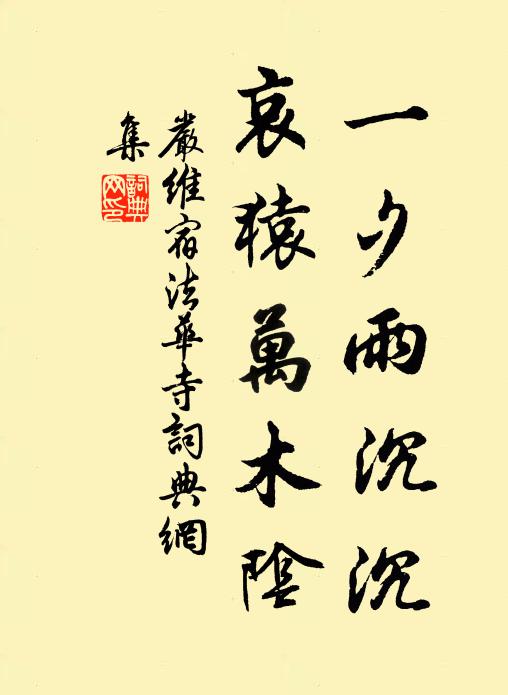 一夕雨沉沉
哀猿萬木陰
嚴維宿法華寺詞典網
集
詞典網印